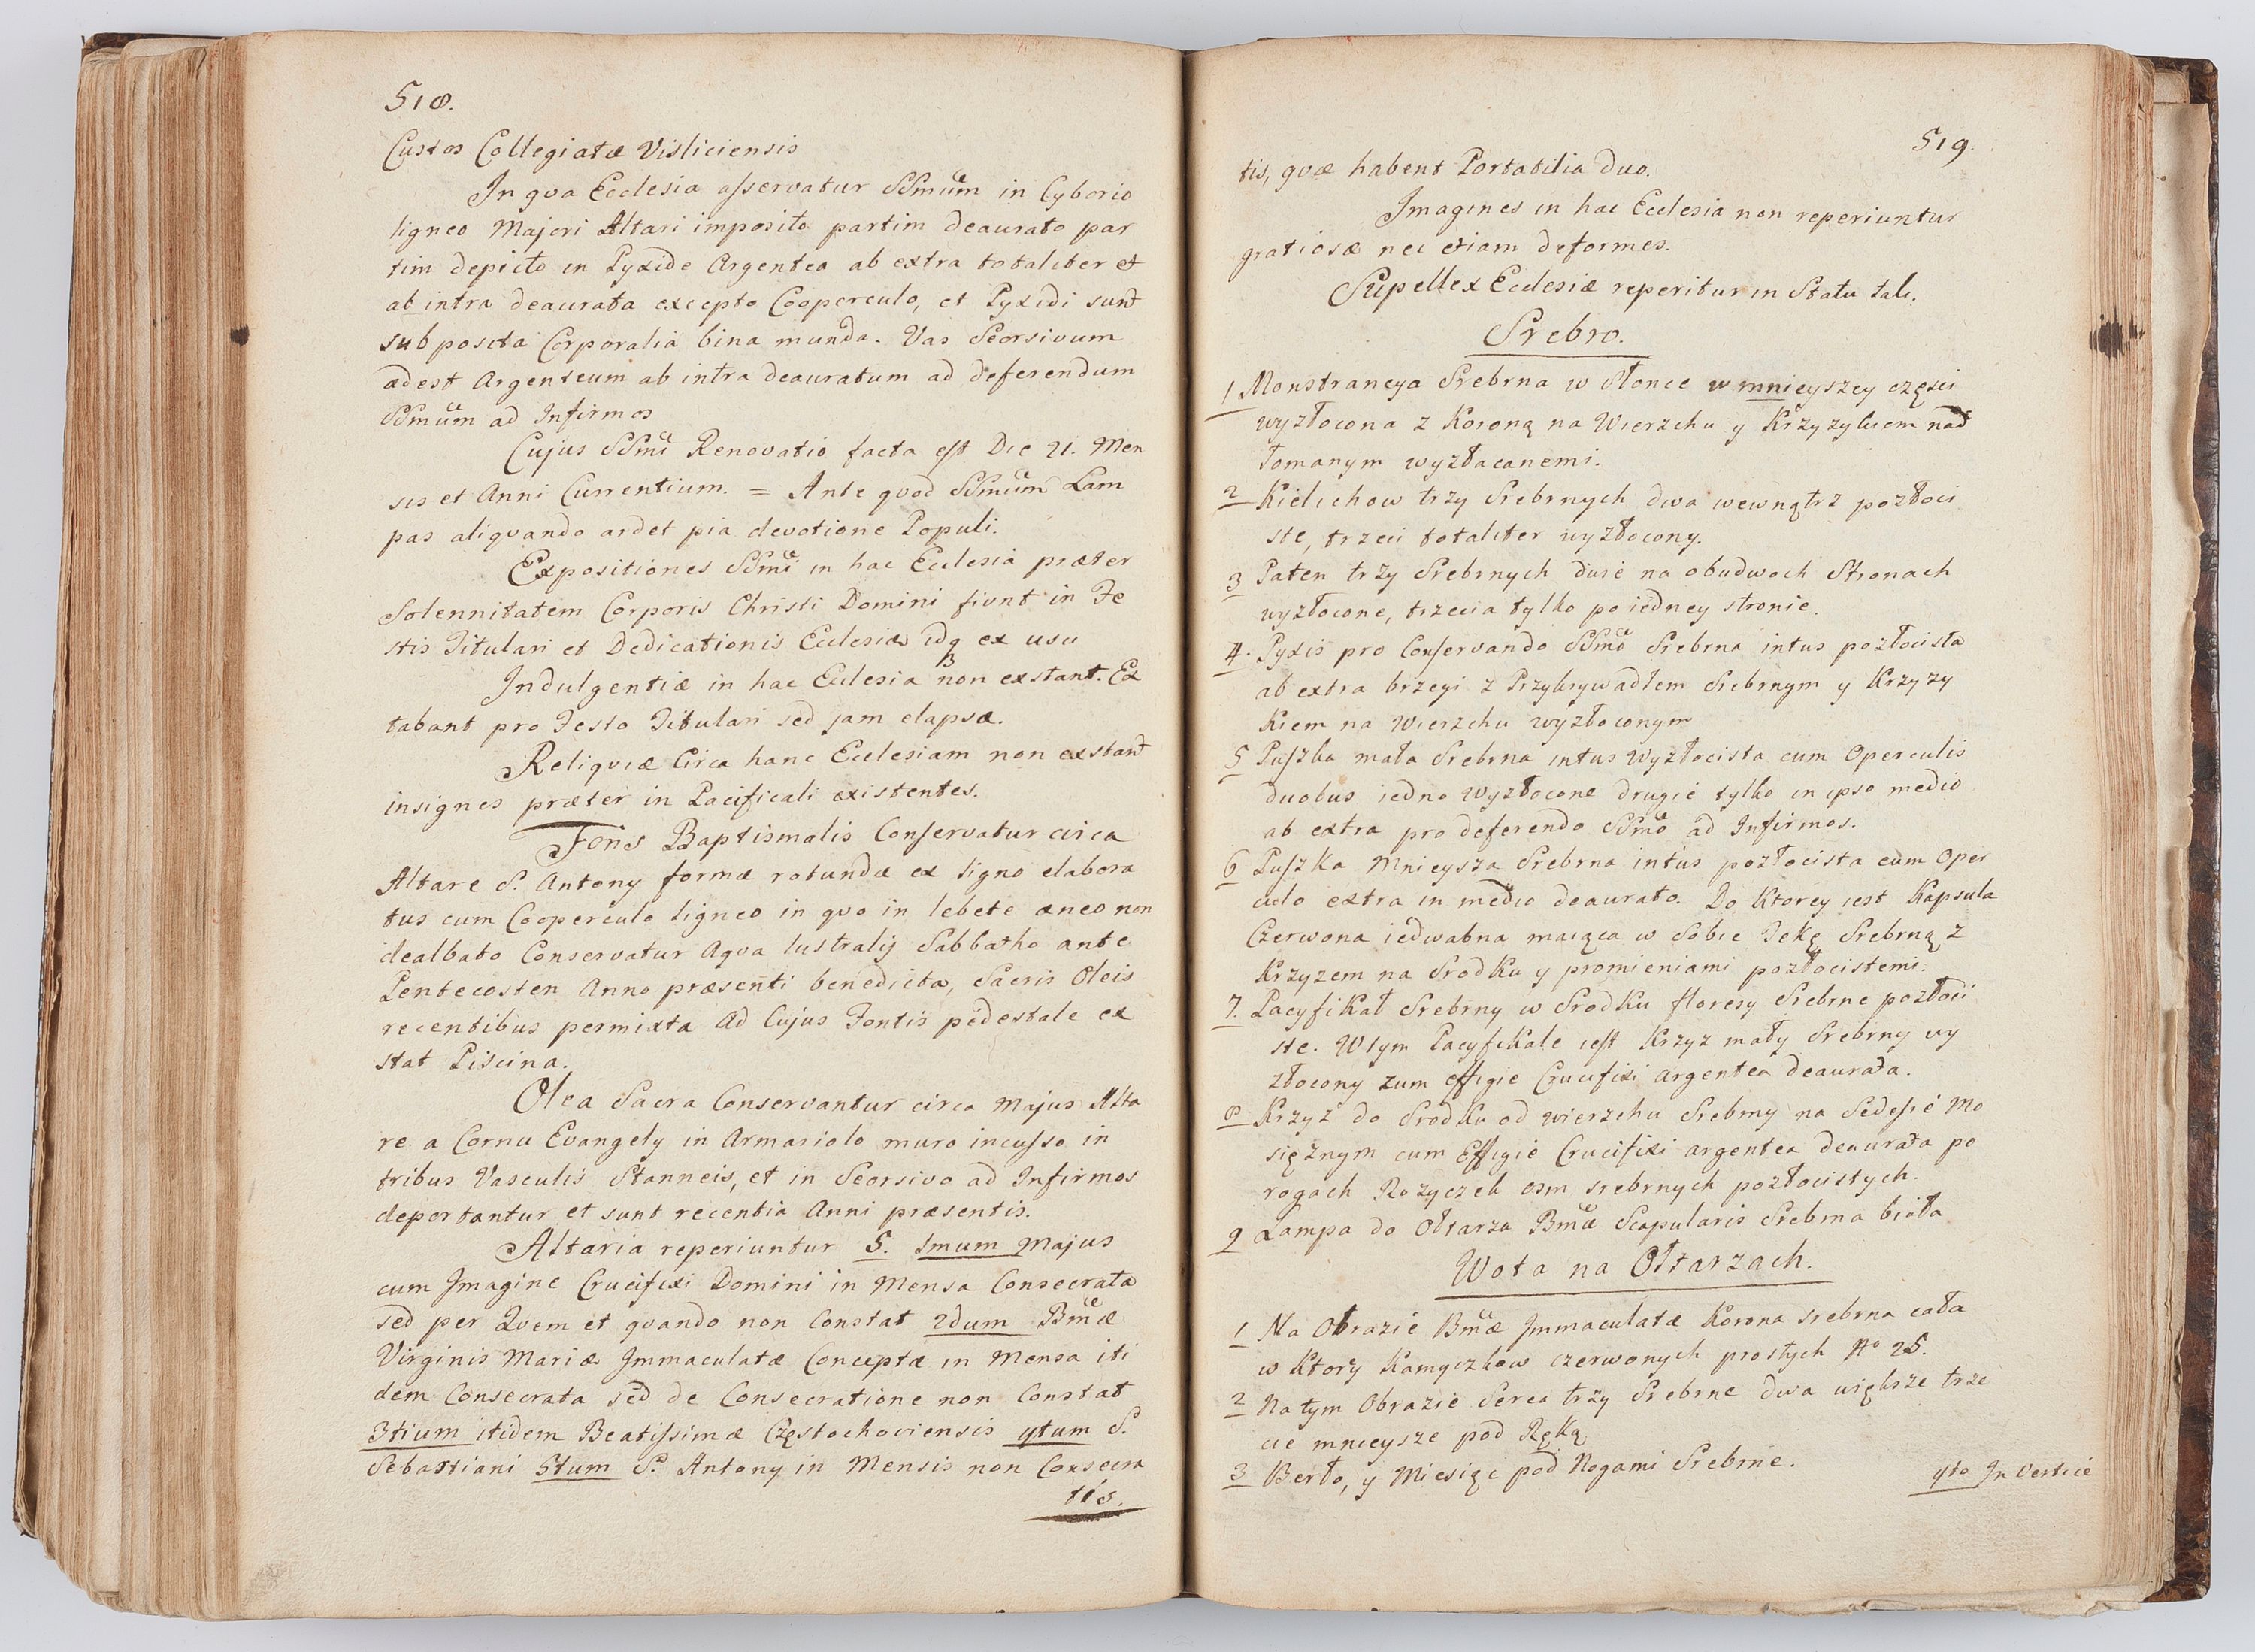 518.
Custos Collegiatæ Visliciensis
In qva Ecclesia aſservatur SSmum in Cyborio
ligneo Majori Altari imposito partim deaurato par
tim depicto in Pyxide Argentea ab extra totaliter et
ab intra deaurata excepto Cooperculo, et Pyxidi sunt
subposita Corporalia bina munda. Vas Seorsivum
adest Argenteum ab intra deauratum ad deferendum
SSmum ad Infirmos
Cujus SSmi Renovatio facta eſt Die 21. Men
sis et Anni Currentium. = Ante qvod SSmum Lam
pas aliqvando ardet pia devotione Populi.
Expositiones SSmi in hac Ecclesia præter
Solennitatem Corporis Christi Domini fiunt in Fe
stis Titulari et Dedicationis Ecclesiæ idq3 ex usu
Indulgentiæ in hac Ecclesia non exstant. Ex
tabant pro Festo Titulari sed jam elapsæ.
Reliqviæ Circa hanc Ecclesiam non exstant
insignes præter in Pacificali existentes.
Fons Baptismalis Conſervatur circa
Altare S. Antony formæ rotundæ ex ligno elabora
tus cum Cooperculo ligneo in qvo in lebete æneo non
dealbato Conservatur Aqva lustralis Sabbatho ante
Pentecosten Anno præsenti benedicta, Sacris Oleis
recentibus permixta Ad Cujus Fontis pedestale ex
stat Piscina.
Olea Sacra Conservantur circa Majus Alta
re a Cornu Evangely in Armariolo muro incuſso in
tribus Vasculis Stanneis, et in Seorsivo ad Infirmos
deportantur et sunt recentia Anni præsentis.
Altaria reperiuntur 5. 1mum Majus
cum Imagine Crucifixi Domini in Mensa Consecrata
sed per Qvem et qvando non Constat 2dum Bmæ
Virginis Mariæ Immaculatæ Conceptæ in Mensa iti
dem Consecrata sed de Consecratione non Constat
3tium itidem Beatiſsimæ Częstochoviensis 4tum S.
Sebastiani 5tum S. Antony in Mensis non Consecra
tis.
519.
tis, qvæ habent Portatilia duo.
Imagines in hac Ecclesia non reperiuntur
gratiosæ nec etiam deformes.
Supellex Ecclesiæ reperitur in Statu tali.
Srebro.
1 Monstrancya Srebrna w Słonce w mnieyszey części
wyzłocona z Koroną na Wierzchu y Krzyzykiem nad
łomanym wyzłacanemi.
2 Kielichow trzy Srebrnych dwa wewnątrz pozłoci
ste, trzeci totaliter wyzłocony.
3 Paten trzy Srebrnych dwie na obudwoch Stronach
wyzłocone, trzecia tylko po iedney stronie.
4. Pyxis pro Conſervando SSmo Srebrna intus pozłocista
ab extra brzegi z Przykrywadłem Srebrnym y Krzyzy
kiem na Wierzchu wyzłoconym
5 Puſzka mała Srebrna intus Wyzłocista cum Operculis
duobus iedno Wyzłocone drugie tylko in ipso medio
ab extra pro deferendo SSmo ad Infirmos.
6 Puſzka Mnieysza Srebrna intus pozłocista cum Oper
culo extra in medio deaurato. Do Ktorey iest Kapsula
Czerwona iedwabna maiąca w Sobie Tekę Srebrną z
Krzyzem na Srodku y promieniami pozłocistemi.
7. Pacyfikał Srebrny w Srodku floresy Srebrne pozłoci
ste. W tym Pacyfikale ieſt Krzyz mały Srebrny wy
złocony zum effigie Crucifixi argentea deaurata.
8 Krzyz do Srodku od wierzchu Srebrny na Sedeſie Mo
siężnym cum Effigie Crucifixi argentea deaurata po
rogach Rozyczek osm srebrnych pozłocistych.
9 Lampa do Ołtarza Bmæ Scapularis Srebrna biała
Wota na Ołtarzach.
1 Na Obrazie Bmæ Immaculatæ Korona srebrna cała
w Ktory Kamyczkow czerwonych prostych No 25.
2 Na tym Obrazie Serca trzy Srebrne dwa większe trze
cie mnieysze pod Ręką
3 Berło, y Miesiąc pod Nogami Srebrne.
4to In Vertice